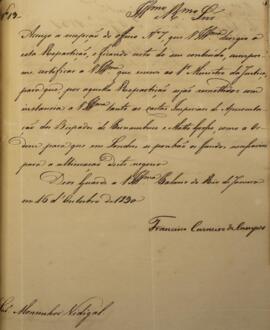 Nº 13.
Illmo. e Rmo. Snr.
Accuso a recepção do officio Nº 7, que V. Illma. dirigio a
esta Repartição, e ficando certo do seu conteudo, cumpre-
me certificar a V. Illma. que exerço ao Sr. Ministro da Justiça,
para que, por aquella Repartição sejão remettidas com
instancia a V. Illma. tanto as cartas Imperiaes de Apresenta-
ção dos Bispados de Pernambuco e Matto Grosso como a or-
dem para que em Londres se ponhão os fundos necessarios
para a ultimação deste negocio.
Deos Guarde a V. Illma. Palacio do Rio de Janeiro
em 16 de Outubro de 1830.
Francisco Carneiro de Campos
Monsenhor Vidigal